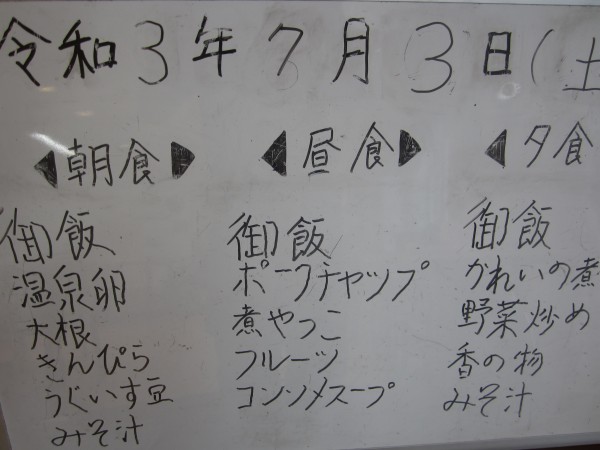 令和3年7月3日(土
朝食
御飯
温泉卵
大根
きんぴら
うぐいす豆
みそ汁
昼食
御飯
ポークチャップ
煮やっこ
フルーツ
コンソメスープ
夕食
御飯
かれいの煮
野菜炒め
香の物
みそ汁